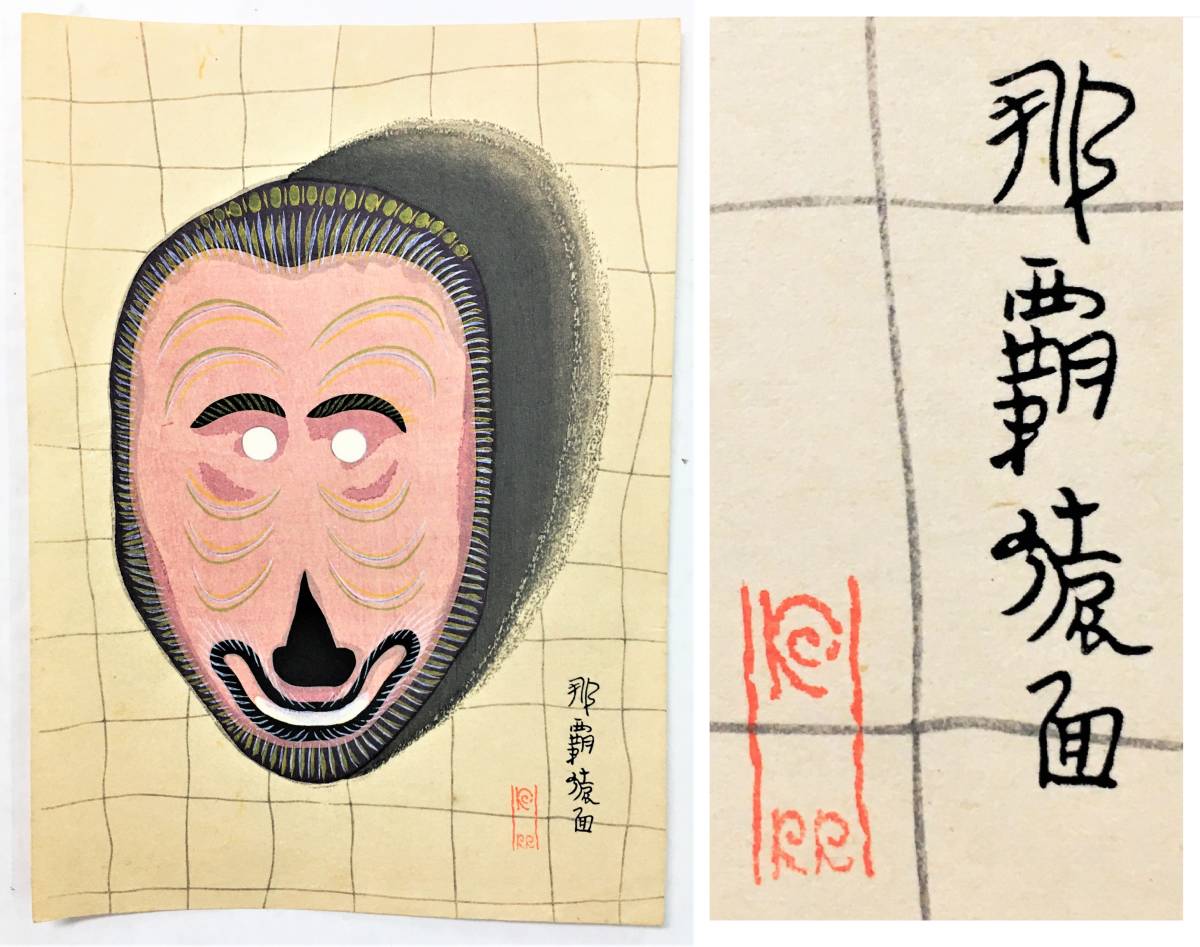 那覇猿面
那覇猿面